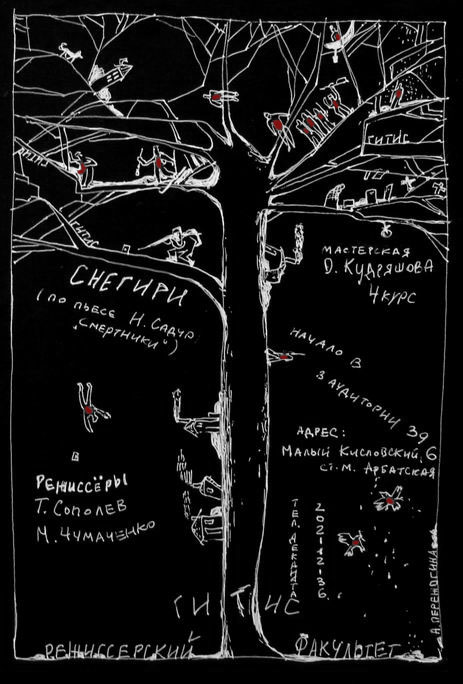 ГИТИС
ГИТИС
СНЕГИРИ
(ПО ПЬЕСЕ Н. САДУР
„СМЕРТНИКИ")
МАСТЕРСКАЯ
О. КУДРЯШОВА
4 КУРС
НАЧАЛО В
З АУДИТОРИИ 39
АДРЕС:
МАЛЫЙ КИСЛОВСКИЙ, 6
СТ. М. АРБАТСКАЯ
РЕЖИССЁРЫ
Т. СОПОЛЕВ
М. ЧУМАЧЕНКО
ТЕЛ. ДЕКАНАТА
202-12-36.
А. ПЕРЕЖОГИНА
ГИТИС
РЕЖИССЕРСКИЙ ФАКУЛЬТЕТ